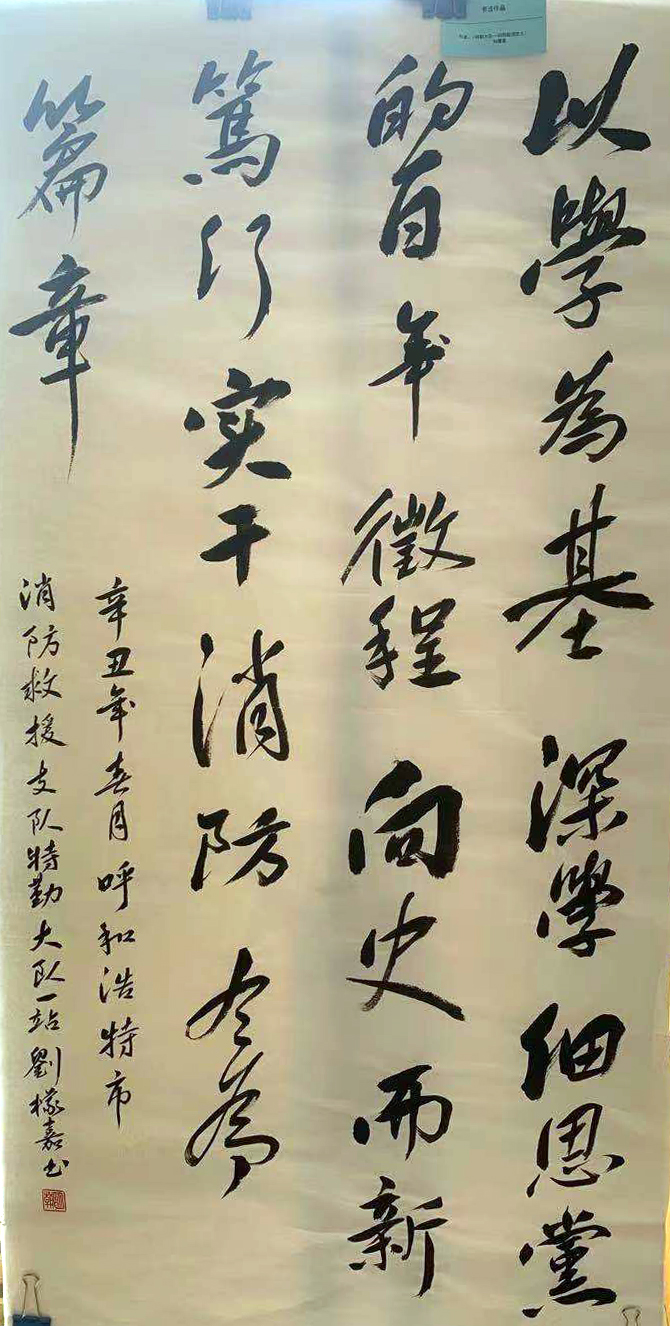 以學為基深學细思黨
的百年徵程向史而新
篤行实干消防
篇章
辛丑年春月呼和浩特市
消防救援支队特勤大队一站劉檬嘉书